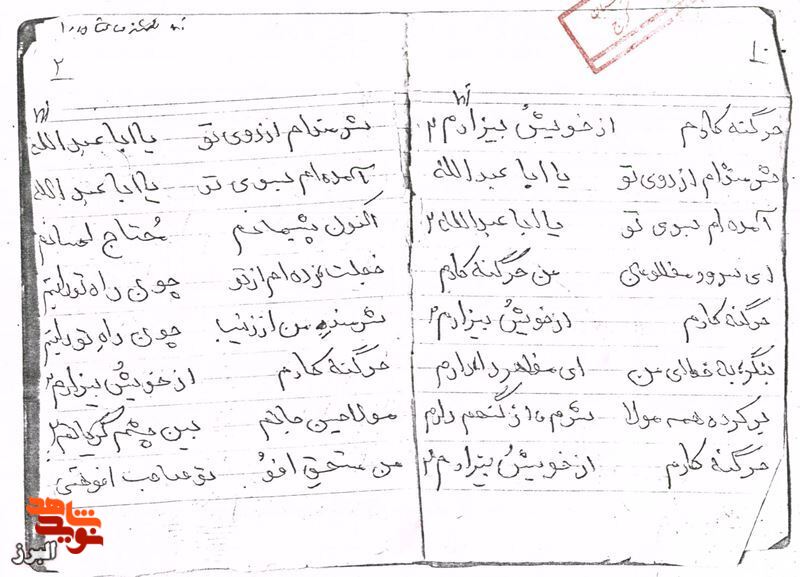 ۱
حر گنه کارم از خویش بیزارم ۲
شرمنده‌ام از روی تو یا ابا عبدالله
آمده‌ام سوی تو یا ابا عبدالله ۲
ای سرور مظلومان من حر گنه کارم
حر گنه کارم از خویش بیزارم ۲
بنگر به خطای من ای مظهر دادارم
بر کرده همه مولا شرم از گنهم دارم
حر گنه کارم از خویش بیزارم ۲
۲
شرمنده‌ام از روی تو یا ابا عبدالله
آمده‌ام سوی تو یا ابا عبدالله
اکنون پشیمانم محتاج احسانم
خجلت زده‌ام از تو چون راه تو بستم
شرمنده من از زینب چون راه تو بستم
حر گنه کارم از خویش بیزارم ۲
مولا حسین جانم بین چشم گریانم ۲
من مستحق افو تو صاحب افو هستی
نوید شاهد
البرز